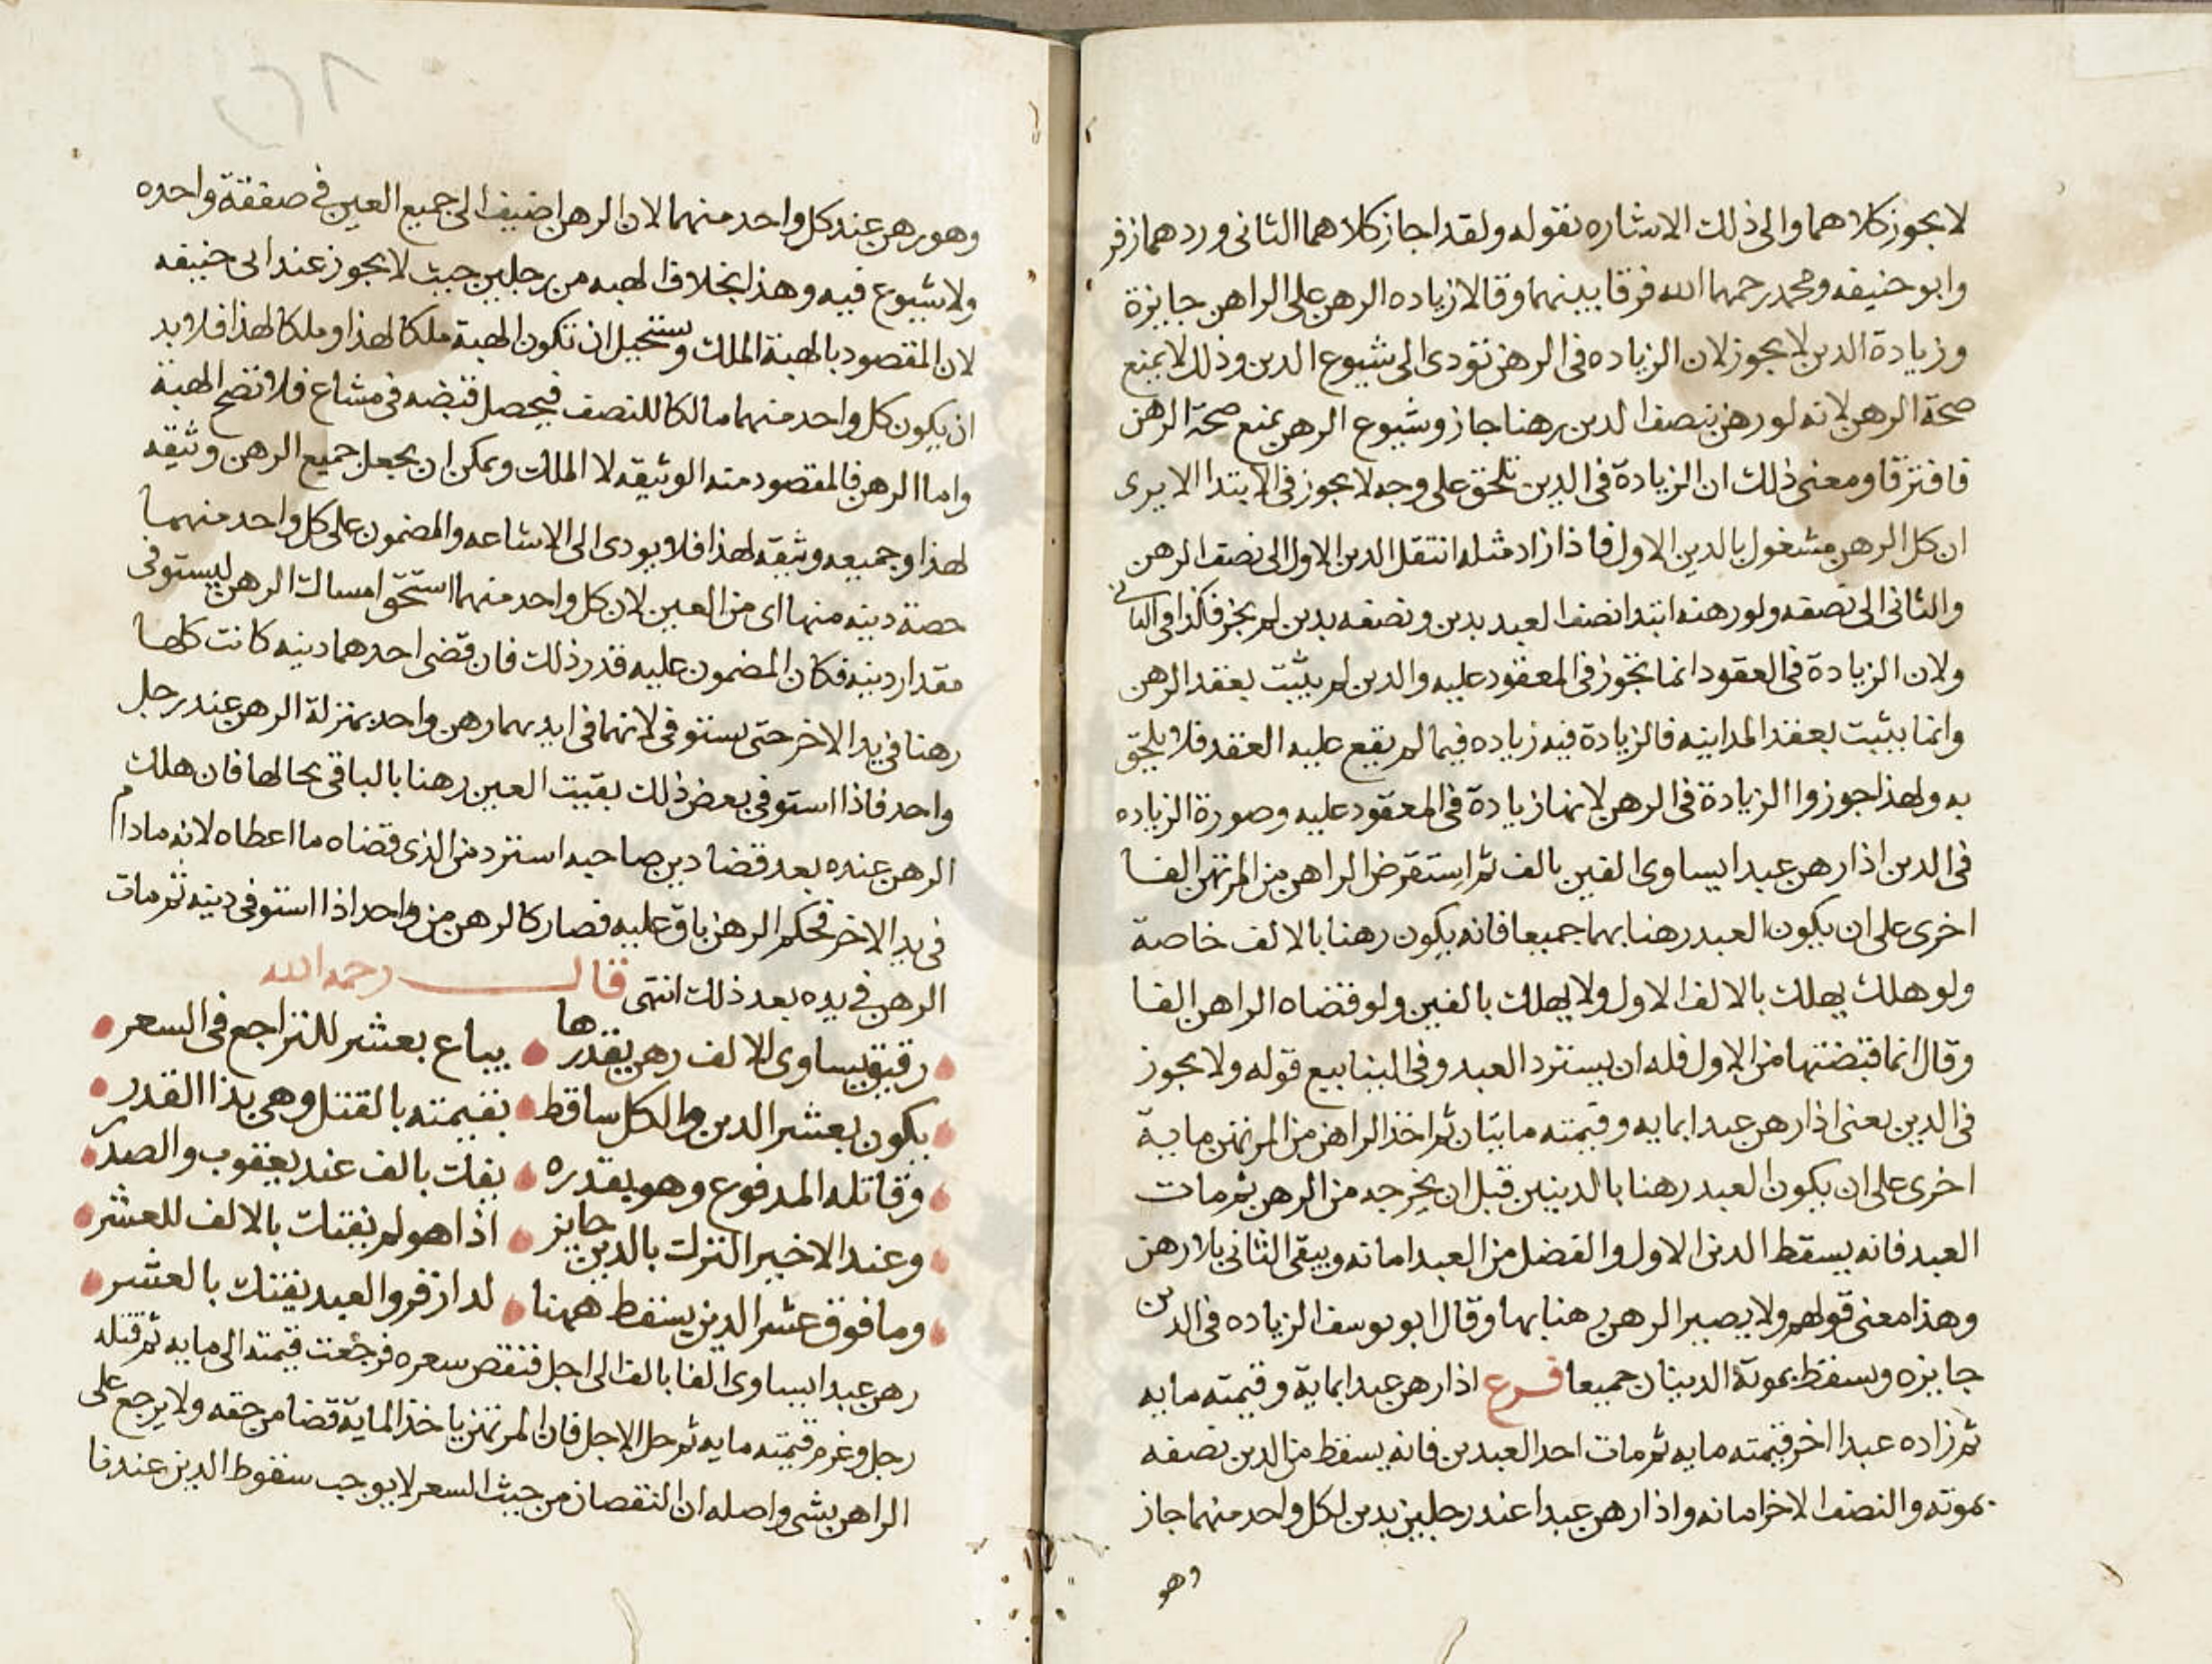 لا يجوز كلاهما والى ذلك الاشاره بقوله ولقد اجاز كلاهما الثانى وردهما زفر
وابو حنيفه ومحمد رحمهما الله فرقا بينهما وقالا زياده الرهن على الراهن جايزة
وزيادة الدين لا يجوز لان الزياده فى الرهن تودى الى شيوع الدين وذلك لا يمنع
صحة الرهن لانه لو رهن بنصف الدين رهنا جاز وشيوع الرهن يمنع صحة الرهن
فافترقا ومعنى ذلك ان الزيادة فى الدين تلحق على وجه لا يجوز فى الابتدا الا يرى
ان كل الرهن مشغول بالدين الاول فاذا زاد مثله انتقل الدين الاول الى نصف الرهن
والثانى الى نصفه ولو رهنه ابتدا نصف العبد بدين ونصفه بدين لم يجز فكذا فى الثانى
ولان الزيادة فى العقود انما تجوز فى المعقود عليه والدين لم يثبت بعقد الرهن
وانما يثبت بعقد المداينه فالزيادة فيه زياده فيما لم يقع عليه العقد فلا يلحق
به ولهذا جوزوا الزيادة فى الرهن لانها زيادة فى المعقود عليه وصورة الزياده
فى الدين اذا رهن عبدا يساوى الفين بالف ثم استقرض الراهن من المرتهن الفا
اخرى على ان يكون العبد رهنا بهما جميعا فانه يكون رهنا بالالف خاصة
ولو هلك يهلك بالالف الاول ولا يهلك بالفين ولو قضاه الراهن الفا
وقال انما قبضتها من الاول فله ان يسترد العبد وفى الينابيع قوله ولا يجوز
فى الدين يعنى اذا رهن عبدا بمايه وقيمته مايتان ثم اخذ الراهن من المرتهن ماية
اخرى على ان يكون العبد رهنا بالدينين قبل ان يخرجه من الرهن ثم مات
العبد فانه يسقط الدين الاول والفضل من العبد امانه ويبقى الثانى بلا رهن
وهذا معنى قولهم ولا يصير الرهن رهنا بها وقال ابو يوسف الزياده فى الدين
جايزه ويسقط بموتة الدينان جميعا فرع اذا رهن عبدا بماية وقيمته مايه
ثم زاده عبدا اخر قيمته مايه ثم مات احد العبدين فانه يسقط من الدين نصفه
بموته والنصف الاخر امانه واذا رهن عبدا عند رجلين بدين لكل واحد منهما جاز
وهو
وهو رهن عند كل واحد منهما لان الرهن اضيف الى جميع العين فى صفقة واحده
ولا شيوع فيه وهذا بخلاف الهبه من رجلين حيث لا يجوز عند ابى حنيفه
لان المقصود بالهبة الملك ويستحيل ان تكون الهبة ملكا لهذا وملكا لهذا فلا بد
ان يكون كل واحد منهما مالكا للنصف فيحصل قبضه فى مشاع فلا تصح الهبة
واما الرهن فالمقصود منه الوثيقه لا الملك ويمكن ان يجعل جميع الرهن وثيقه
لهذا وجميعه وثيقه لهذا فلا يودى الى الاشاعه والمضمون على كل واحد منهما
حصة دينه منها اى من العين لان كل واحد منهما استحق امساك الرهن ليستوفى
مقدار دينه فكان المضمون عليه قدر ذلك فان قضى احدهما دينه كانت كلها
رهنا فى يد الاخر حتى يستوفى لانها فى ايديهما رهن واحد بمنزلة الرهن عند رجل
واحد فاذا استوفى بعض ذلك بقيت العين رهنا بالباقى بحالها فان هلك
الرهن عنده بعد قضا دين صاحبه استرد من الذى قضاه ما اعطاه لانه مادام
فى يد الاخر فحكم الرهن باق عليه فصار كالرهن من واحد اذا استوفى دينه ثم مات
الرهن فى يده بعد ذلك انتهى قال رحمه الله
رقيق يساوى للالف رهن بقدرها يباع بعشر للتراجع فى السعر
يكون بعشر الدين والكل ساقط بقيمته بالقتل وهى بذا القدر
وقاتله المدفوع وهو بقدره يفك بالف عند يعقوب والصدر
وعند الاخير الترك بالدين جايز اذا هو لم يفتك بالالف للعشر
وما فوق عشر الدين يسقط ههنا لدا زفر والعبد يفتك بالعشر
رهن عبدا يساوى الفا بالف الى اجل فنقص سعره فرجعت قيمته الى مايه ثم قتله
رجل وغرم قيمته مايه ثم حل الاجل فان المرتهن ياخذ الماية قضا من حقه ولا يرجع على
الراهن بشى واصله ان النقصان من حيث السعر لا يوجب سقوط الدين عندنا